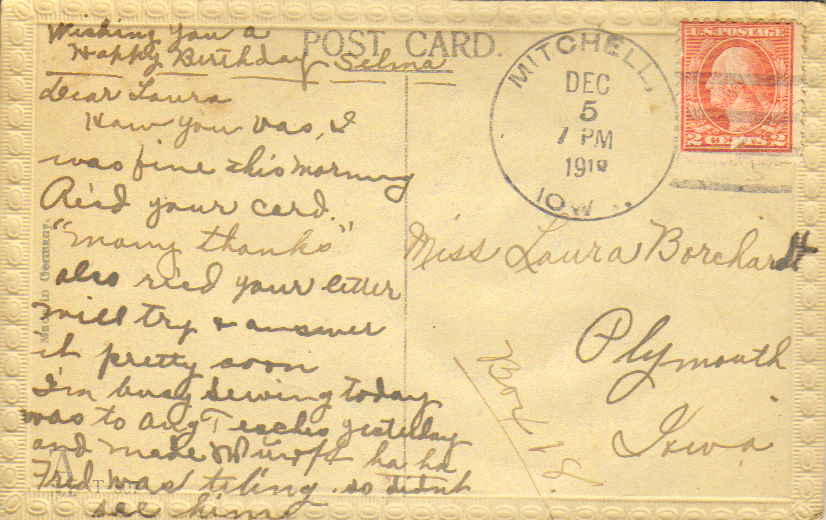 Wishing You a
Happy Birthday Selma
POST CARD.
Dear Laura
How you vas, I
was fine this morning
Ric'd your card.
"Many thanks"
also ric'd your letter
Will try & answer
it pretty soon
I'm busy sewing today
was to Aug yesterday
and made ha ha
Fred was so didn't
see him
Made in Germany.
MITCHELL,
DEC
5
7 PM
191
IOW
U.S. POSTAGE
2 CENTS 2
Miss Laura Borchardt
Plymouth
Iowa
Box 18